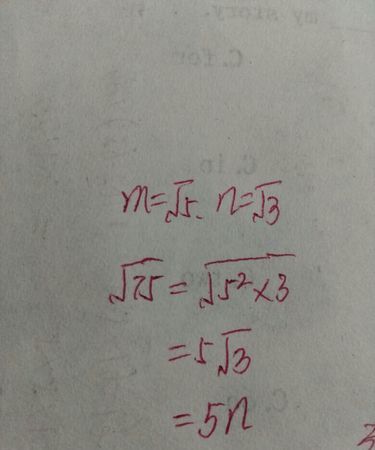 my story.
C. for
C. in
m=√5. n=√3
√75 = √5²×3
= 5√3
= 5n